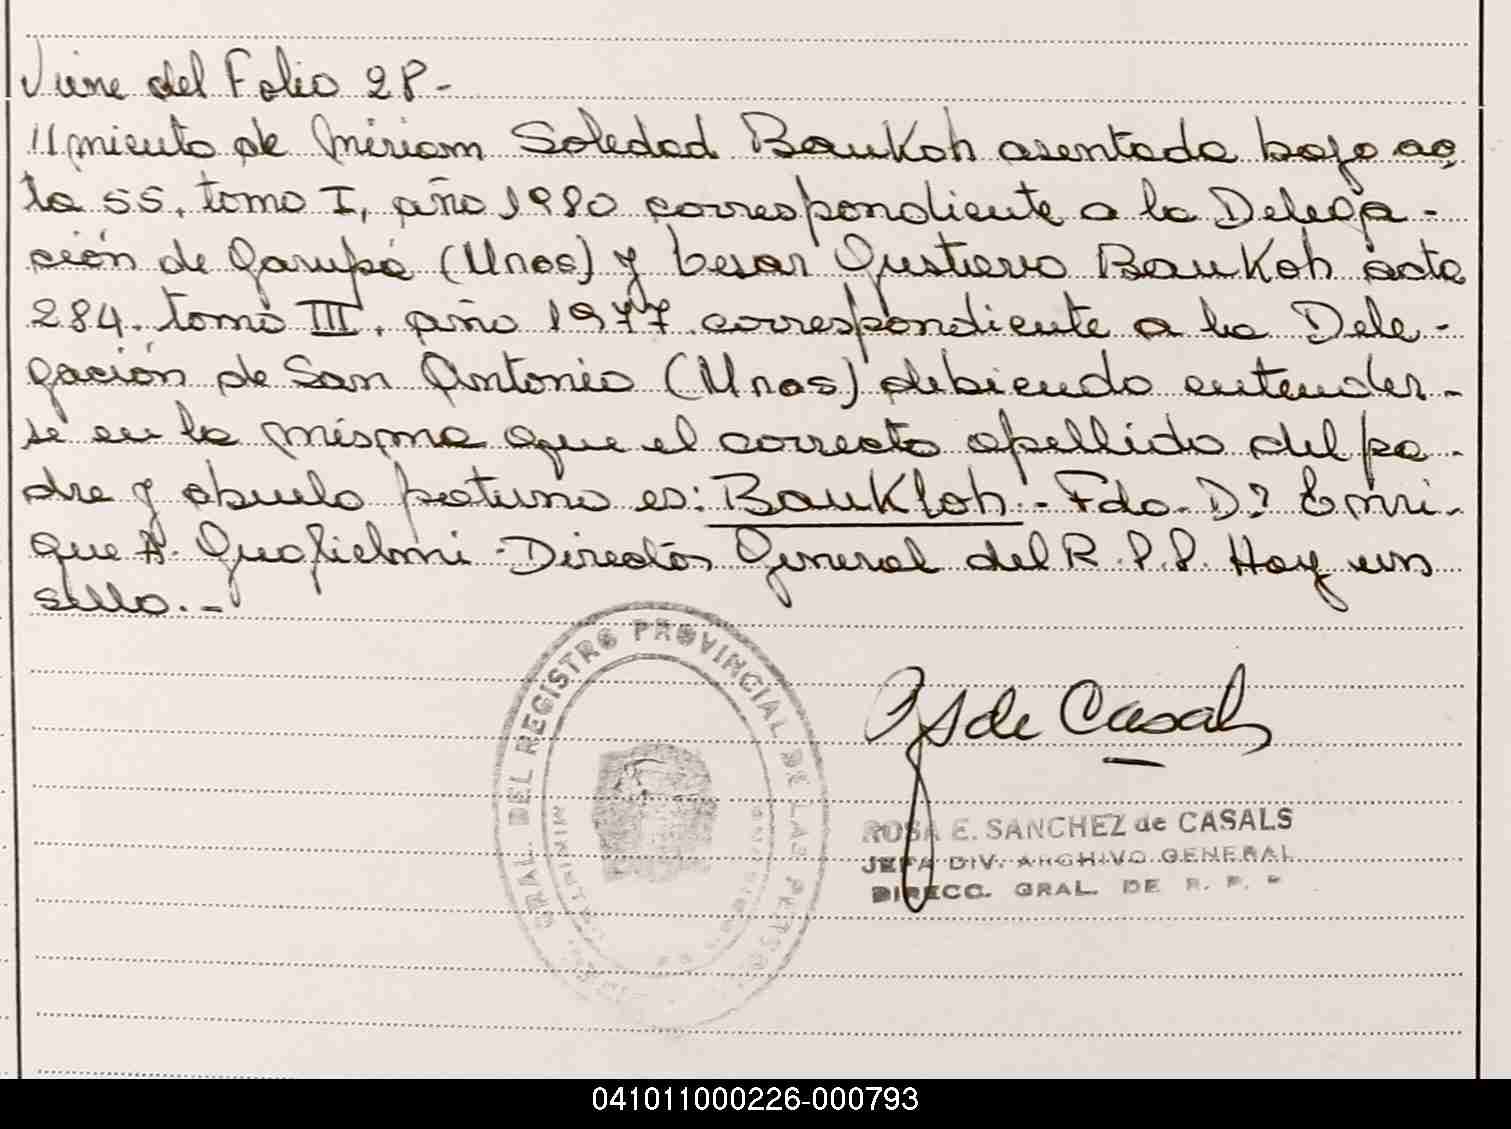 Viene del Folio 28.-
//miento de Miriam Soledad BauKoh asentada bajo ac
ta 55, tomo I, año 1980 correspondiente a la Delega-
ción de Garupá (Mnes) y Cesar Gustavo BauKoh acta
284. tomo III, año 1977 correspondiente a la Dele-
gación de San Antonio (Mnes) debiendo entender-
se en la misma que el correcto apellido del pa-
dre y abuelo paterno es: BauKloh.- Fdo. Dr Enri-
que A. Guglielmi - Director General del R.P.P. Hay un
sello.-
GRAL. DEL REGISTRO PROVINCIAL DE LAS PERSO
de Casals
ROSA E. SANCHEZ de CASALS
JEFA DIV. ARCHIVO GENERAL
DIRECC. GRAL. DE R. P. P
041011000226-000793